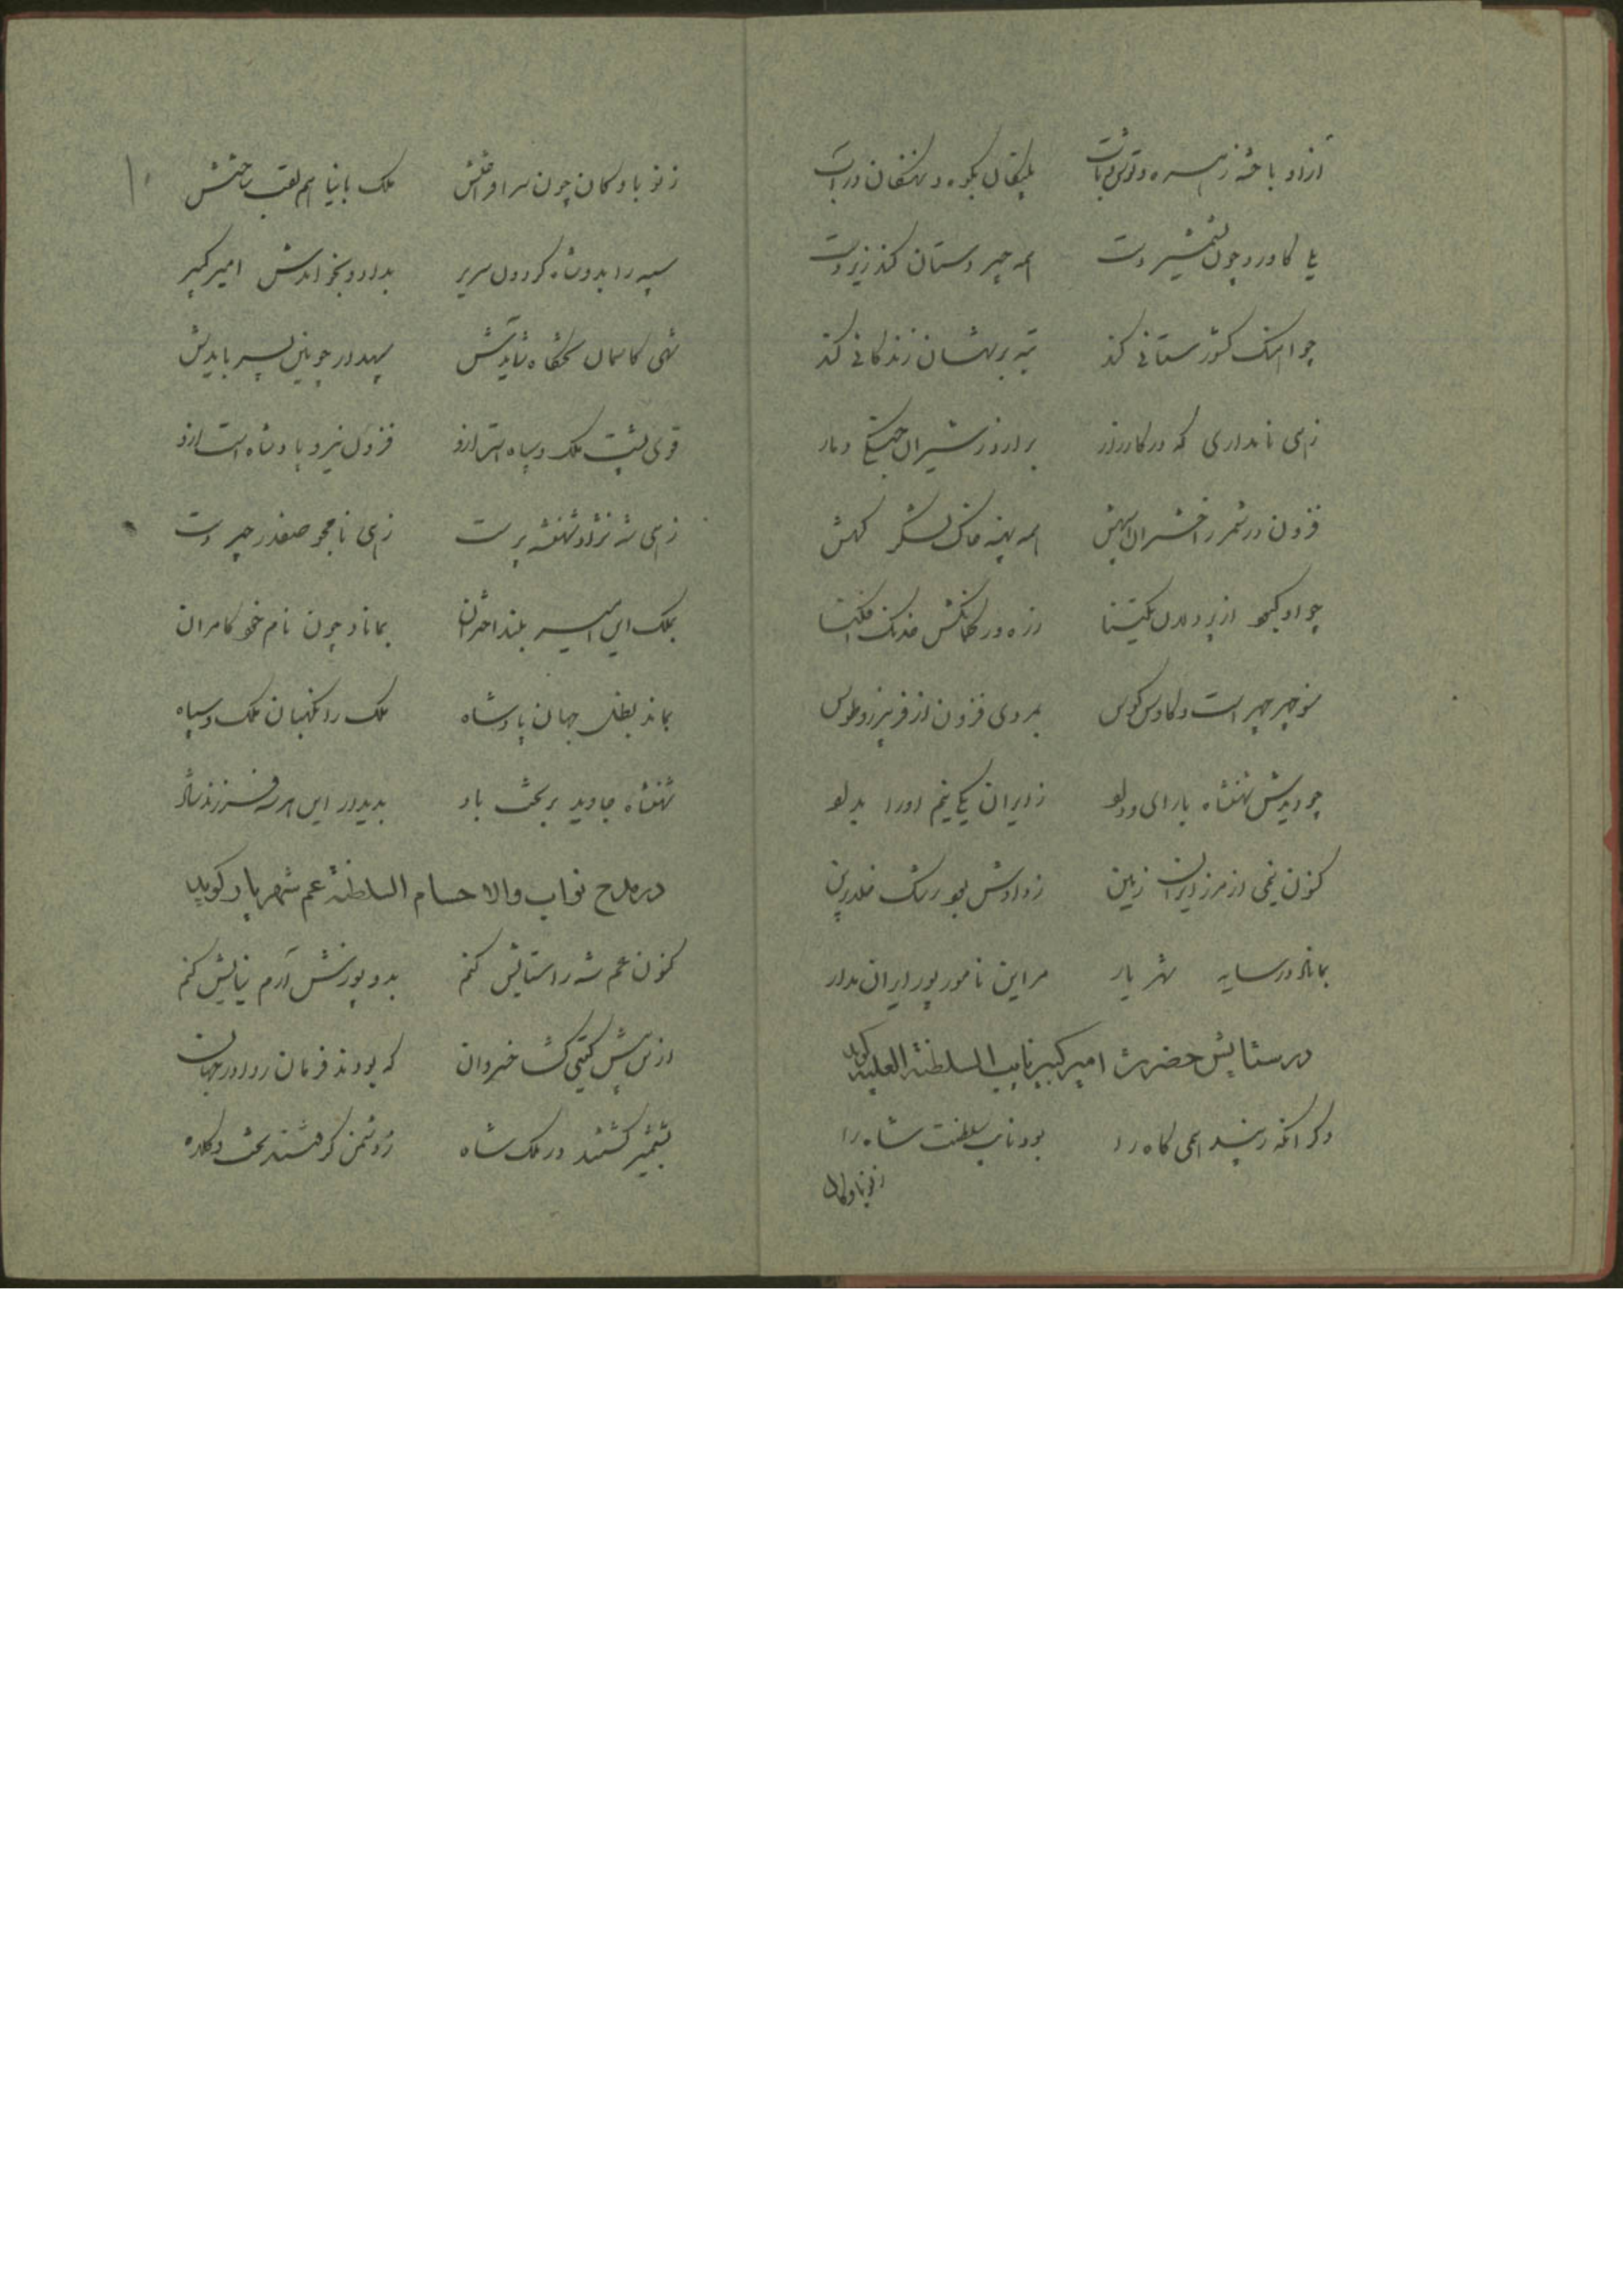 ازاو باخته زهسره و توش و تاب پلنگان بکوه و نهنگان در آب
یلی کاورد چون بشمشیر دست همه چیر دستان کند زیر دست
چو اهنک کشور ستانی کند تبه بر شهان زندکانی کند
زهی نامداری که در کارزار برارد ز شیران جنگی دمار
فزون در شمر ز اختران سپهش همه پهنه خاک لشکر کهش
چو او کیخو از پردلان یکتنا
منوچهر چهر است و کاوس کوس بمردی فزون از فریبرز و طوس
چو دیدش شهنشاه با رای و دلو ز ایران یکی نیم او را بدلو
کنون نیمی از مرز ایران زمین ز دادش بود رشک خلد برین
بماناد در سایه شهریار مر این نامور پور ایران مدار
در ستایش حضرت امیرکبیر نایب السلطنة العلیه کوید
دکر انکه زیبد همی کاه را بود نایب سلطنت شاه را
ز نو بادکان
ز نو بادکان چون سرافراختش ملک با نیا هم لقب ساختش
سپه را بدو شاه کردون سریر بداد و بخواندش امیر کبیر
شهی کاسمان تختگاه شایدش سپهدار چونین پسر بایدش
قوی پشت ملک و سپاه است ازو فزون نیروی پادشاه است ازو
زهی شه نژاد شهنشه پرست زهی نامجو صفدر چیر دست
بملک این امیر بلند اختران بماناد چون نام خود کامران
بماند بظل جهان پادشاه ملک را نگهبان ملک و سپاه
شهنشاه جاوید بر تخت باد بدیدار این هر سه فرزند شاد
در مدح نواب والا حسام السلطنة عم شهریار کوید
کنون عم شه را ستایش کنم بدو پوزش آرم نیایش کنم
ازین پیش کیتی کشا خسروان که بودند فرمان روا در جهان
بشمشیر کشتند در ملک شاه ز دشمن کرفتند تخت و کلاه